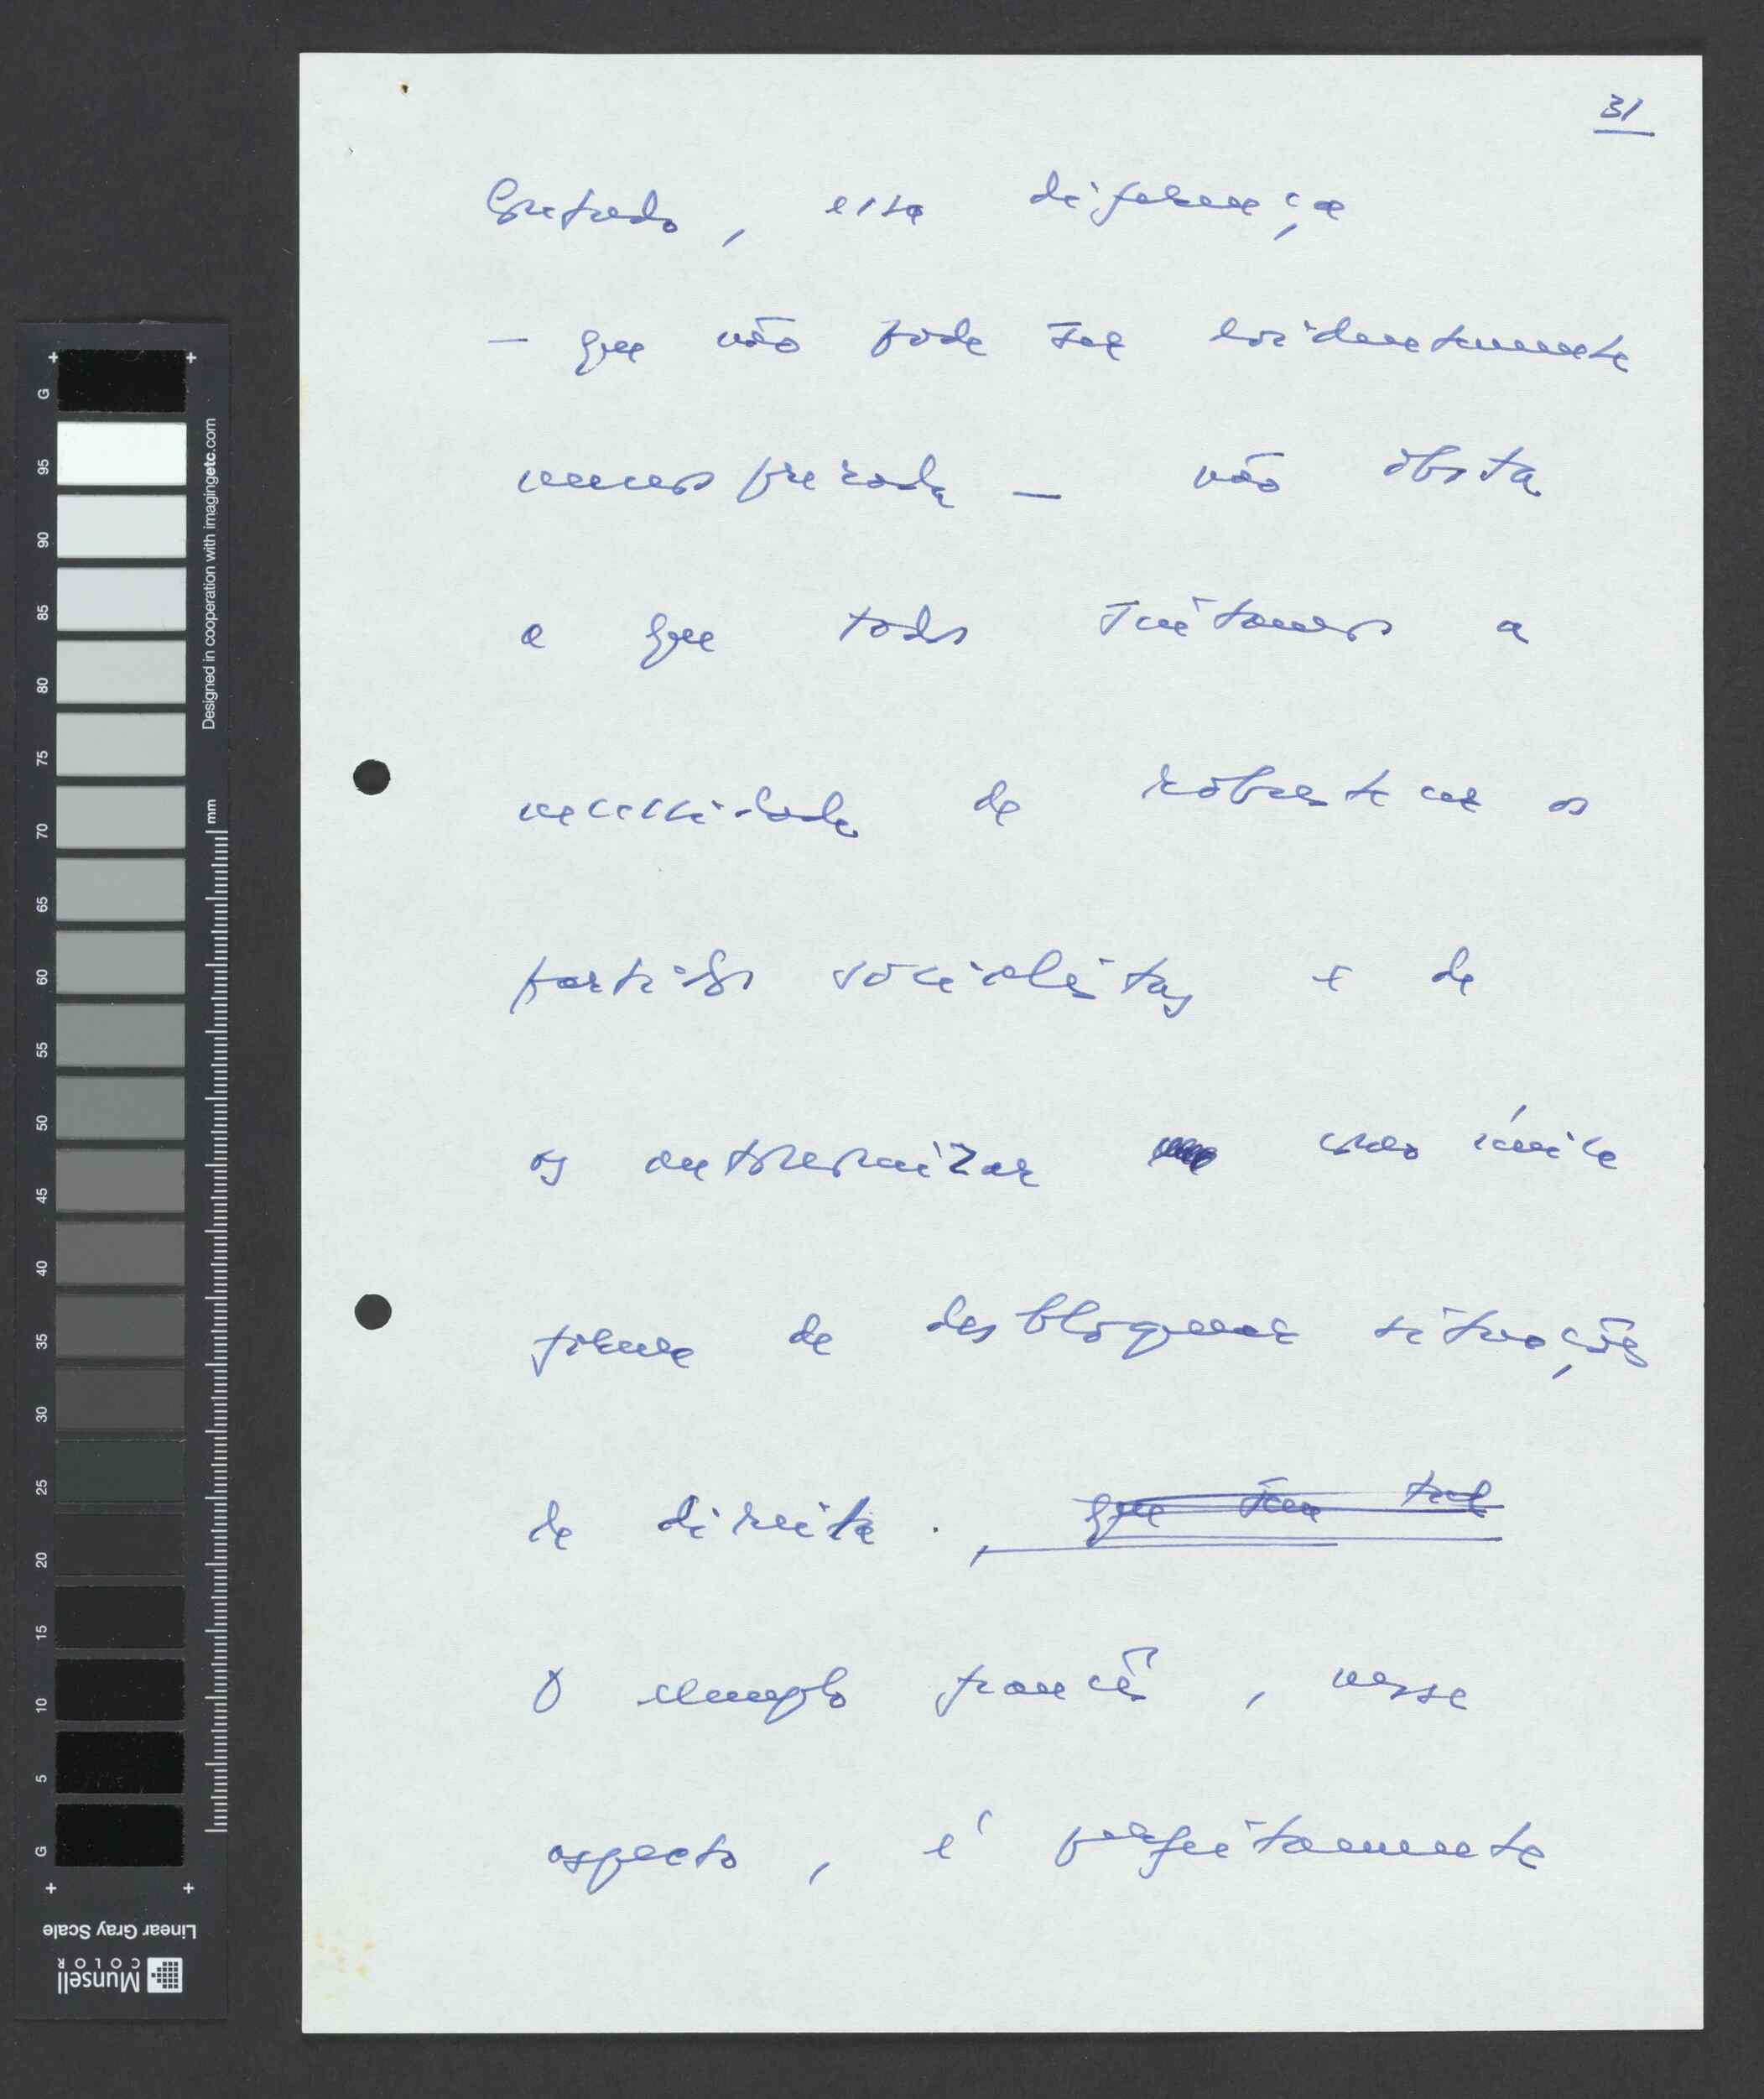 31
Contudo, essa diferença
— que não pode ser evidentemente
menosprezada — não obsta
a que todos sintamos a
necessidade de robustecer os
partidos socialistas e de
os autonomizar como única
forma de desbloquear situações
de direita. , que tem tal
O exemplo francês, nesse
aspecto, é perfeitamente
G
95
90
85
80
75
70
65
60
55
50
45
40
35
30
25
20
15
10
5
G
mm
Designed in cooperation with imagingetc.com
Linear Gray Scale
Munsell
COLOR